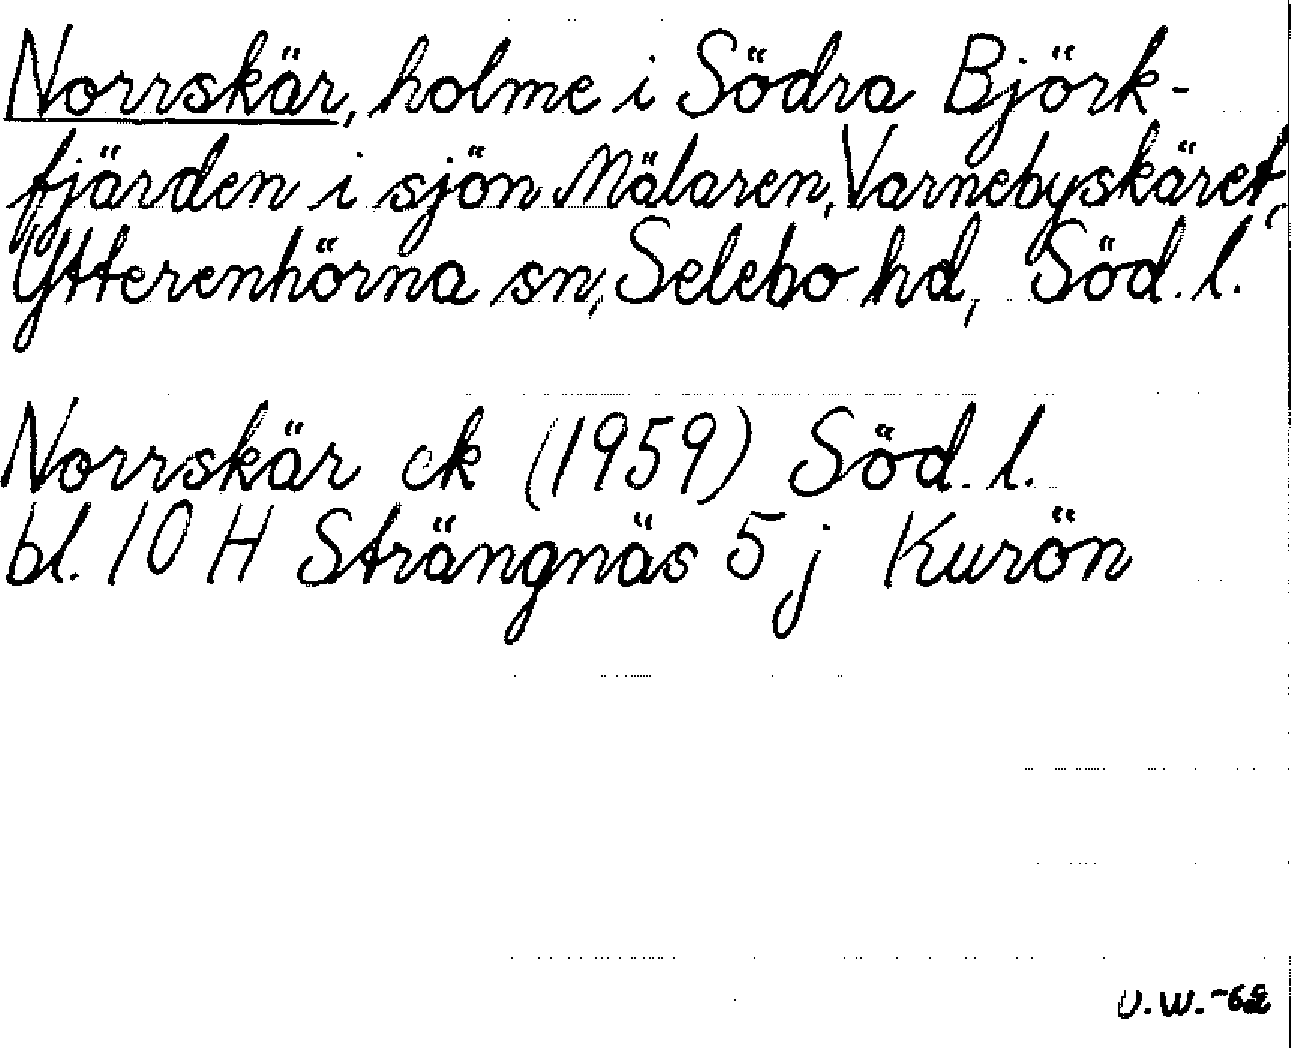 Norrskär, holme i Södra Björk-
fjärden i sjön Mälaren, Varnebyskäret,
Ytterenhörna sn, Selebo hd, Söd. l.
Norrskär ek (1959) Söd. l.
bl. 10 H Strängnäs 5 j Kurön
U.W.-62